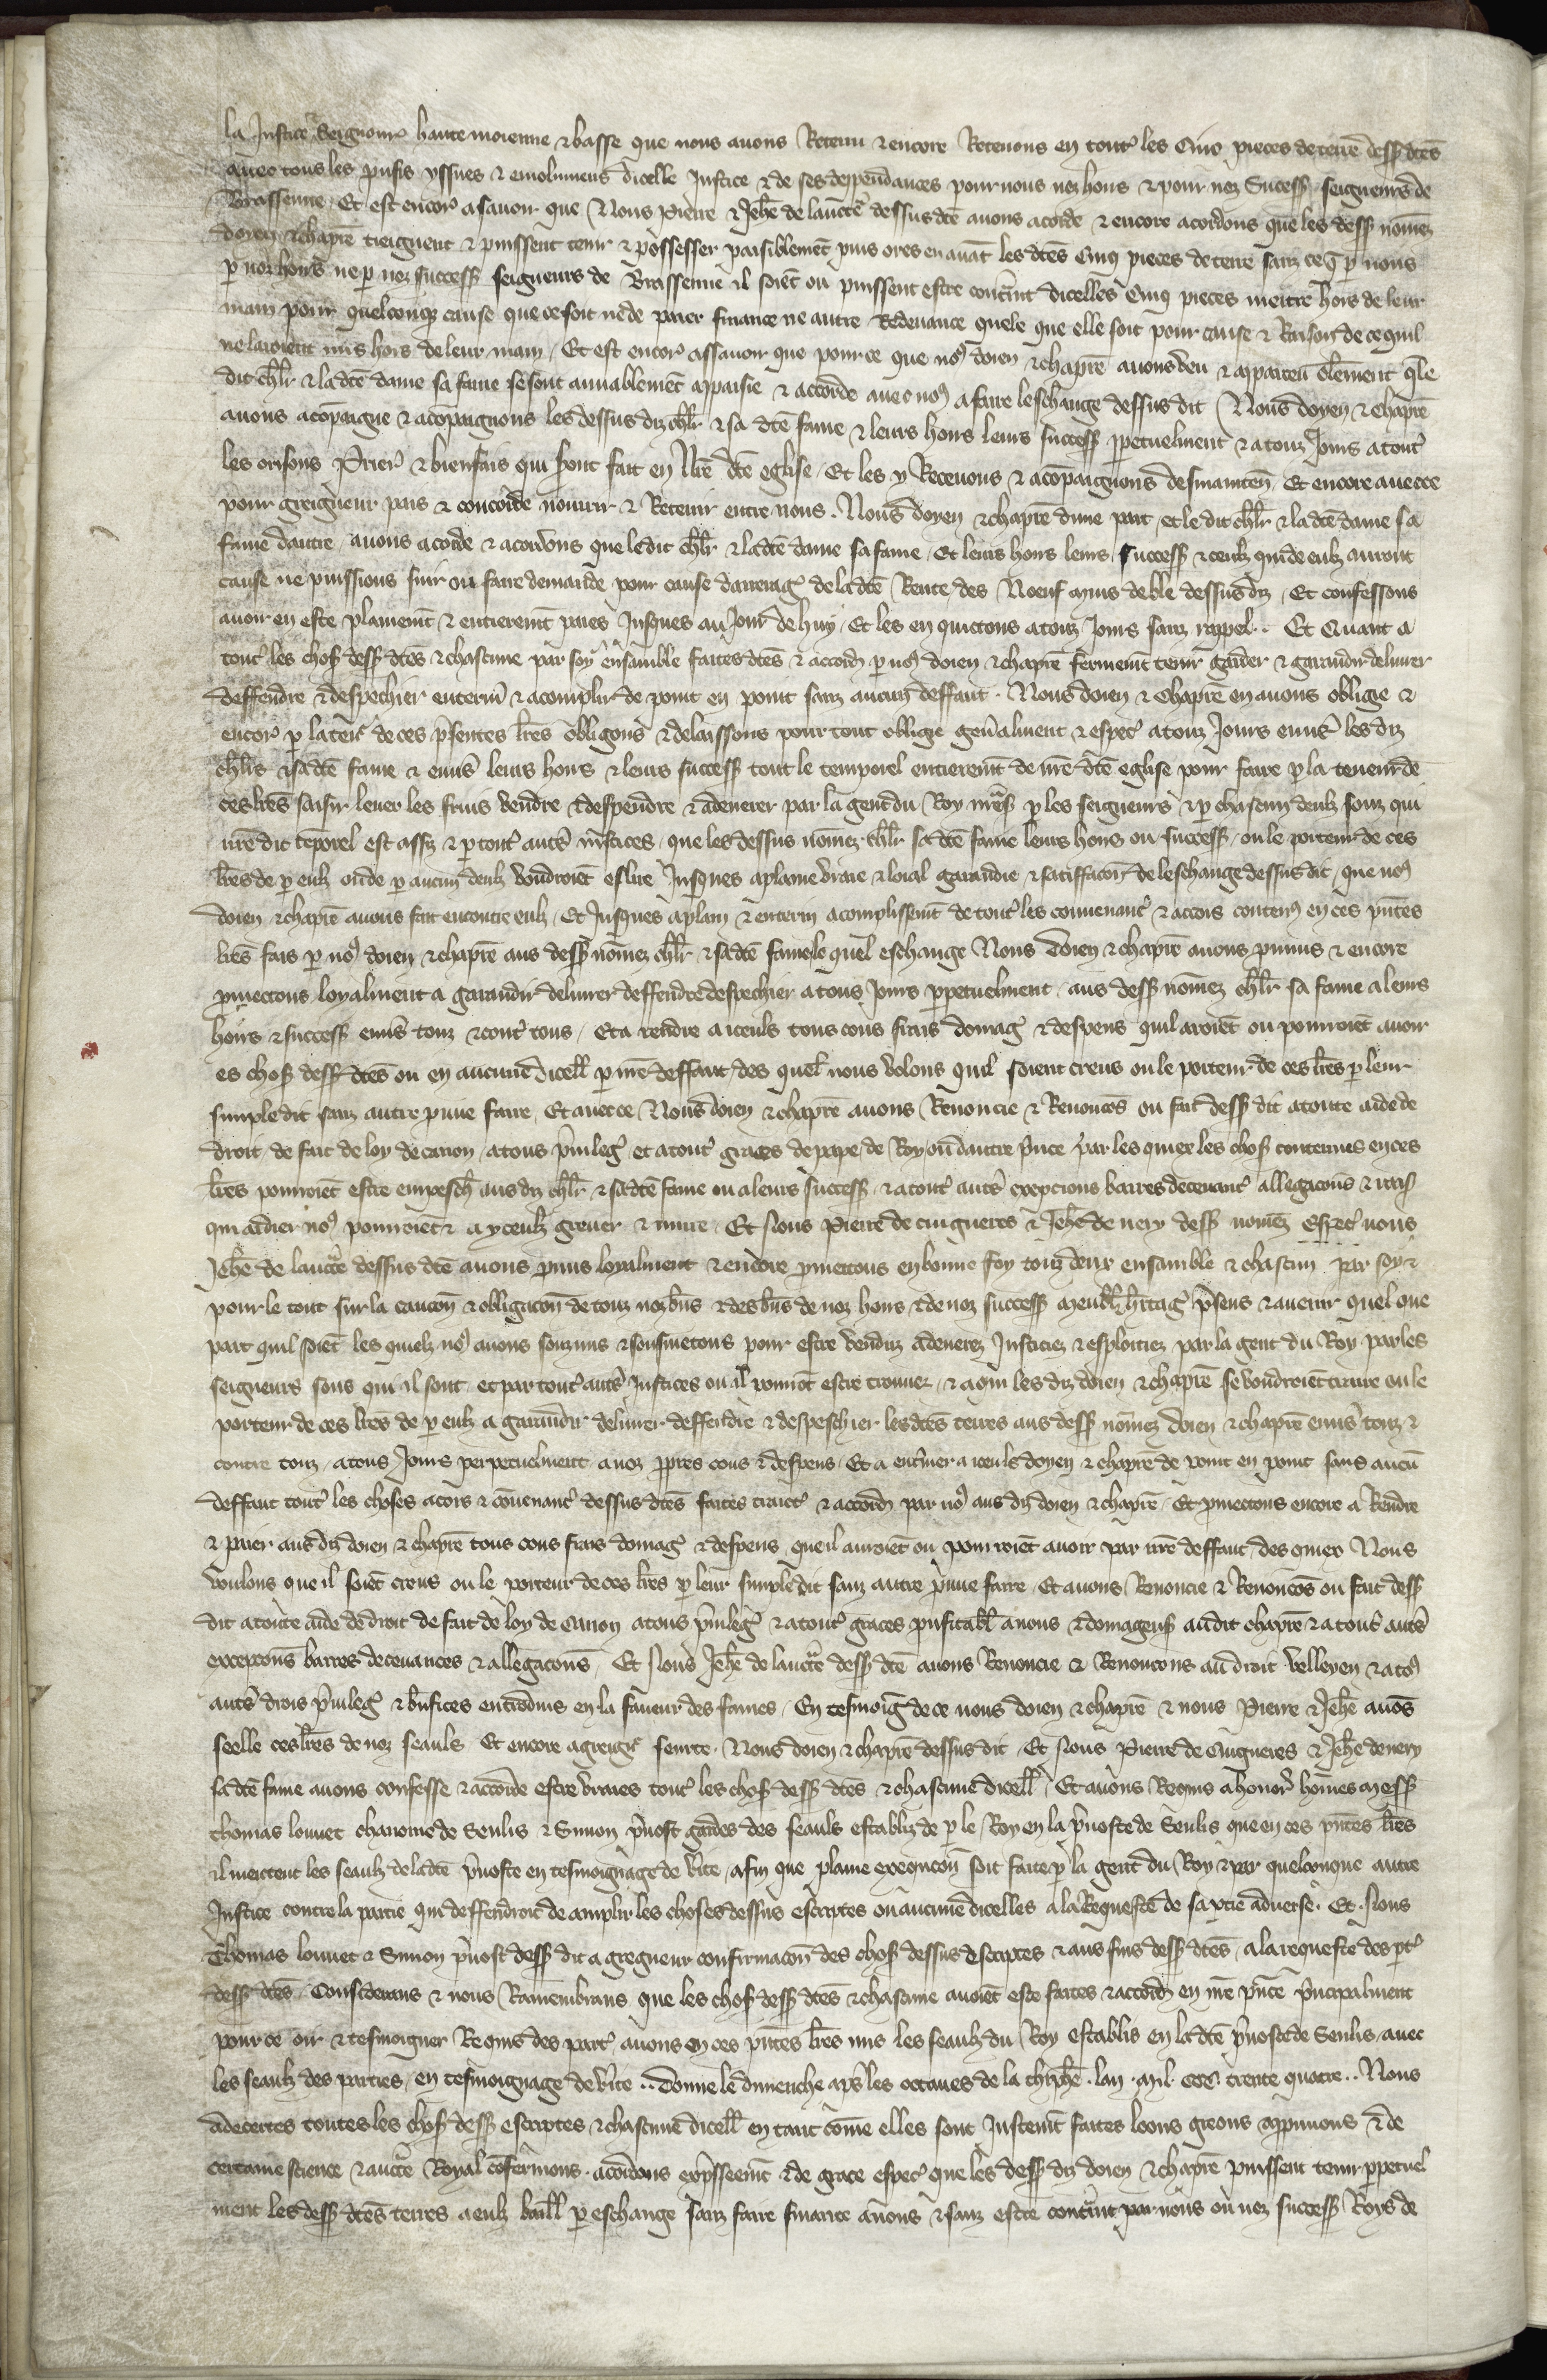 la Justice & Seignour haute moienne & basse que nous auons Retenu & encore Retenons en tout les cinc pieces de terre dess dtes
auec tous les prufis yssues & emolumens dicelle Justice & de ses despendances pour nous noz hoirs & pour noz Success seigneurs de
Brassenne. Et est encor asauoir que Nous Pierre & Jehe de laucte dessus dte auons acorde & encore acordons que les dess nomez
doyen & chapre tieignent & puissent tenir & possesser paisiblemet puis ores en auat les dtes cinq pieces de terre sanz ce q p nous
p noz hoirs ne p noz success seigneurs de Brassenne il soiet ou puissent estre contrint dicelles cinq pieces mettre hors de leur
main pour quelconq cause que ce soit ne de paier finance ne autre Redeuance quele que elle soit pour cause & Raison de ce quil
ne lairoient mis hors de leur main. Et est encor assauoir que pour ce que nos doien & chapre auons veu & aparceu clerement q le
dit chlr & la dte dame sa fame se sont amiablemet apaisie & accorde auec nos a faire leschange dessus dit Nous doyen & chapre
auons acopaigne & acopaignons les dessus diz chlr & sa dte fame & leurs hoirs leurs success ppetuelment & a touz Jours a tout
les orisons Prier & bienfais qui sont fait en Nre dte eglise. Et les y Receuons & acopaignons desmainten. Et encore auecce
pour greigneur pais & concorde nourrir & Retenir entre nous. Nous doyen & chapre dune part et le dit chlr & la dte dame sa
fame dautre auons acorde & acordons que le dit chlr & la dte dame sa fame. Et leurs hoirs leurs success & ceulz qui de eulz auront
cause ne puissions suir ou faire demande pour cause darrerag de la dte Rente des Noeuf muis de ble dessus diz. Et confessons
auoir en este plainemt & entieremt paies Jusques au Jour de huy. Et les en quictons a touz Jours sanz rappel. Et Quant a
tout les chos dess dtes & chascune par soy & ensamble faites dtes & accord p nos doien & chapre fermemt tenir garder & garandir deliurer
deffendre & despechier enterin & acomplir de point en point sanz aucun deffaut. Nous doien & Chapre en auons oblige &
encor p la ten de ces psentes lres obligons & delaissons pour tout oblige genalment & espec a touz Jours enuers les diz
chlrs & sa dte fame & enuers leurs hoirs & leurs success tout le temporel entieremt de nre dte eglise pour faire p la teneur de
ces lres saisir leuer les fruis vendre & despendre & adenerer par la gent du Roy mes p les seigneurs & p chascun deulz souz qui
nre dit teporel est assiz & p tout auts iustices que les dessus nomez chlr sa dte fame leurs hoirs ou success ou le porteur de ces
lres de p eulz ou de p aucun deulz voudroiet eslire Jusques a plaine vraie & loial garandie & satiffacon de leschange dessus dit que nos
doien & chapre auons fait encontre eulz. Et Jusques a plain & enterin acomplissemt de tout les conuenant & accors contens en ces pntes
lres fais p nos doien & chapre aus dess nomez chlr & sa dte fame le quel eschange Nous Doien & chapre auons pmis & encore
pmectons loyalment a garandir deliurer deffendre despechier a tous Jours ppetuelment aus dess nomez chlr sa fame a leurs
hoirs & success enuers touz & cont tous. Et a rendre a iceuls tous cous frais domag & despens quil aroiet ou pourroiet auoir
es chos dess dtes ou en aucune dicell p nre deffaut des quel nous volons quil soient creus ou le porteur de ces lres p leur
simple dit sanz autre pruue faire. Et auecce Nous doien & chapre auons Renoncie & Renoncos ou fait dess dit a toute aide de
droit de fait de loy de canon a tous priuileg et a tout graces de pape de Roy ou dautre pnce par les quiex les chos contenues en ces
lres pourroiet estre empesch aus diz chlr & sa dte fame ou a leurs success & a tout auts excepcions barres deceuant allegacons & rais
qui aidier nos pourroiet & a yceulz greuer & nuire. Et Nous Pierre de cuigneres & Jehe de nery dess nomez Espec nous
Jehe de laucte dessus dte auons pmis loyalment & encore pmettons en bonne foy touz deux ensamble & chascun par soy &
pour le tout sur la caucon & obligacon de touz noz bns & des bns de noz hoirs & de noz success meubl hitag psens & auenir quel que
part quil soiet les quielz nos auons souzmis & sousmetons pour estre venduz adenerez Justiciez & esploitiez par la gent du Roy par les
seigneurs sous qui il sont et par tout auts Justices ou il pourrot estre trouuez & a qui les diz doien & chapre se voudroient traire ou le
porteur de ces lres de p eulz a garandir deliurer deffendre & despeschier les dtes terres aus dess nomez doien & chapre enuers touz &
contre touz a tous Jours perpetuelment a noz ppres cous & despens. Et a enteriner a iceuls doyen & chapre de point en point sans aucu
deffaut tout les choses acors & couenant dessus dtes faites traict & accord par nos aus diz doien & chapre. Et pmectons encore a Rendre
& paier aus diz doien & chapre tous cous frais domag & despens que il auroiet ou pourroiet auoir par nre deffaut des quiex Nous
voulons que il soiet creus ou le porteur de ces lres p leur simple dit sanz autre pruue faire. Et auons Renoncie & Renoncos ou fait dess
dit a toute aide de droit de fait de loy de canon a tous priuileg & a tout graces prufitabl a nous & domageus au dit chapre & a tout auts
excepcons barres deceuances & allegacons. Et Nous Jehe de laucte dess dte auons Renoncie & Renoncons au droit velleyen & a tos
auts drois priuileg & benfices entroduis en la faueur des fames. En tesmoig de ce nous doien & chapre & nous Pierre & Jehe auos
seelle ces lres de noz seauls Et encore a greign seurte. Nous doien & chapre dessus dit. Et Nous Pierre de Cuigneres & Jehe de nery
sa dte fame auons confesse & accorde estre vraies tout les chos dess dtes & chascune dicell. Et auons Requis a honor homes mess
thomas louuet chanoine de Senlis & Simon puost gardes des seauls establiz de p le Roy en la puoste de Senlis que en ces pntes lres
il mettent les seaulz de la dte puoste en tesmoignage de vite afin que plaine execucon soit faite p la gent du Roy & par quelconque autre
Justice contre la partie qui deffendroit de amplir les choses dessus escriptes ou aucune dicelles a la Requeste de sa ptie aduerse. Et Nous
Thomas louuet & Simon puost dess dit a gregneur confirmacon des chos dessus descriptes & aus fins dess dtes a la requeste des pt
dess dtes Considerans & nous Ramembrans que les chos dess dtes & chascune auoiet este faites & accord en nre pnce pncipalment
pour ce oir & tesmoigner Requis des part auons en ces pntes lres mis les seaulz du Roy establis en la dte puoste de Senlis auec
les seaulz des parties en tesmoignage de vite. Donne le dimenche aps les octaues de la thiphe. lan mil ccc trente quatre. Nous
adecertes toutes les chos dess escriptes & chascune dicell en tant come elles sont Justemt faites loons greons appruuons & de
certaine science & aucte Royal cofermons. acordons expsseemt & de grace espec que les dess diz doien & chapre puissent tenir ppetuel
ment les dess dtes terres a eulz baill p eschange sanz faire finance a nous & sanz estre contrint par nous ou noz success Roys de